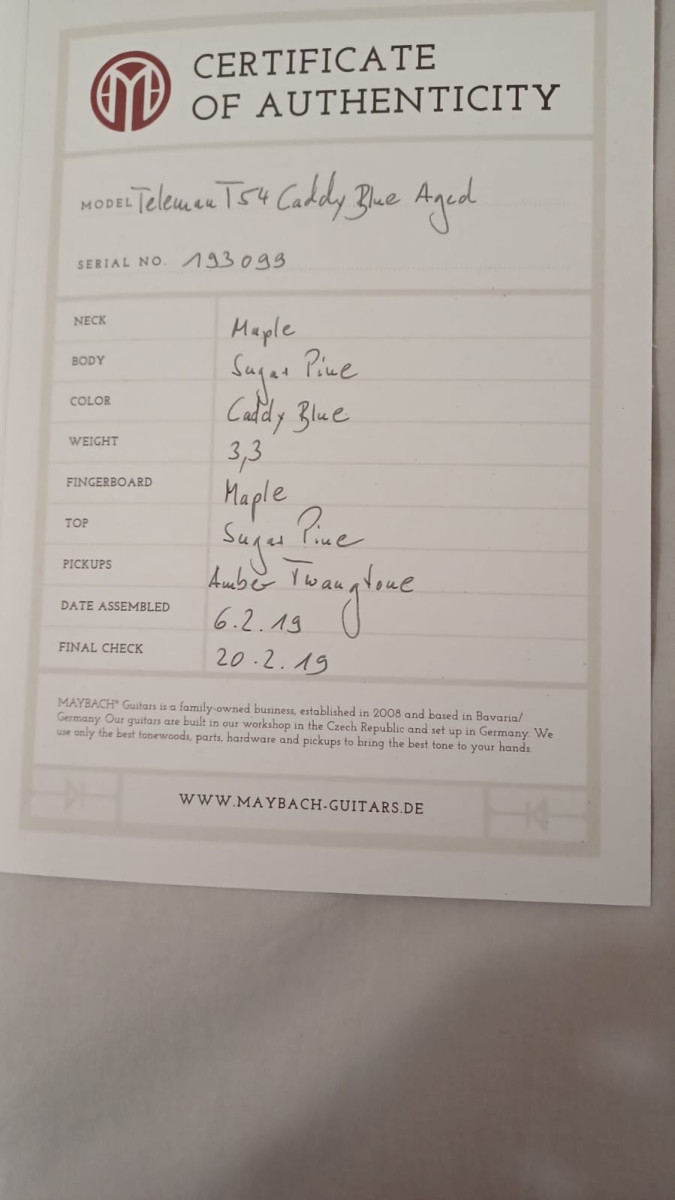 CERTIFICATE
OF AUTHENTICITY
MODEL Teleman T54 Caddy Blue Aged
SERIAL NO. 193099
NECK Maple
BODY Sugar Pine
COLOR Caddy Blue
WEIGHT 3,3
FINGERBOARD Maple
TOP Sugar Pine
PICKUPS Amber Twangtone
DATE ASSEMBLED 6.2.19
FINAL CHECK 20.2.19
MAYBACH® Guitars is a family-owned business, established in 2008 and based in Bavaria/
Germany. Our guitars are built in our workshop in the Czech Republic and set up in Germany. We
use only the best tonewoods, parts, hardware and pickups to bring the best tone to your hands.
WWW.MAYBACH-GUITARS.DE